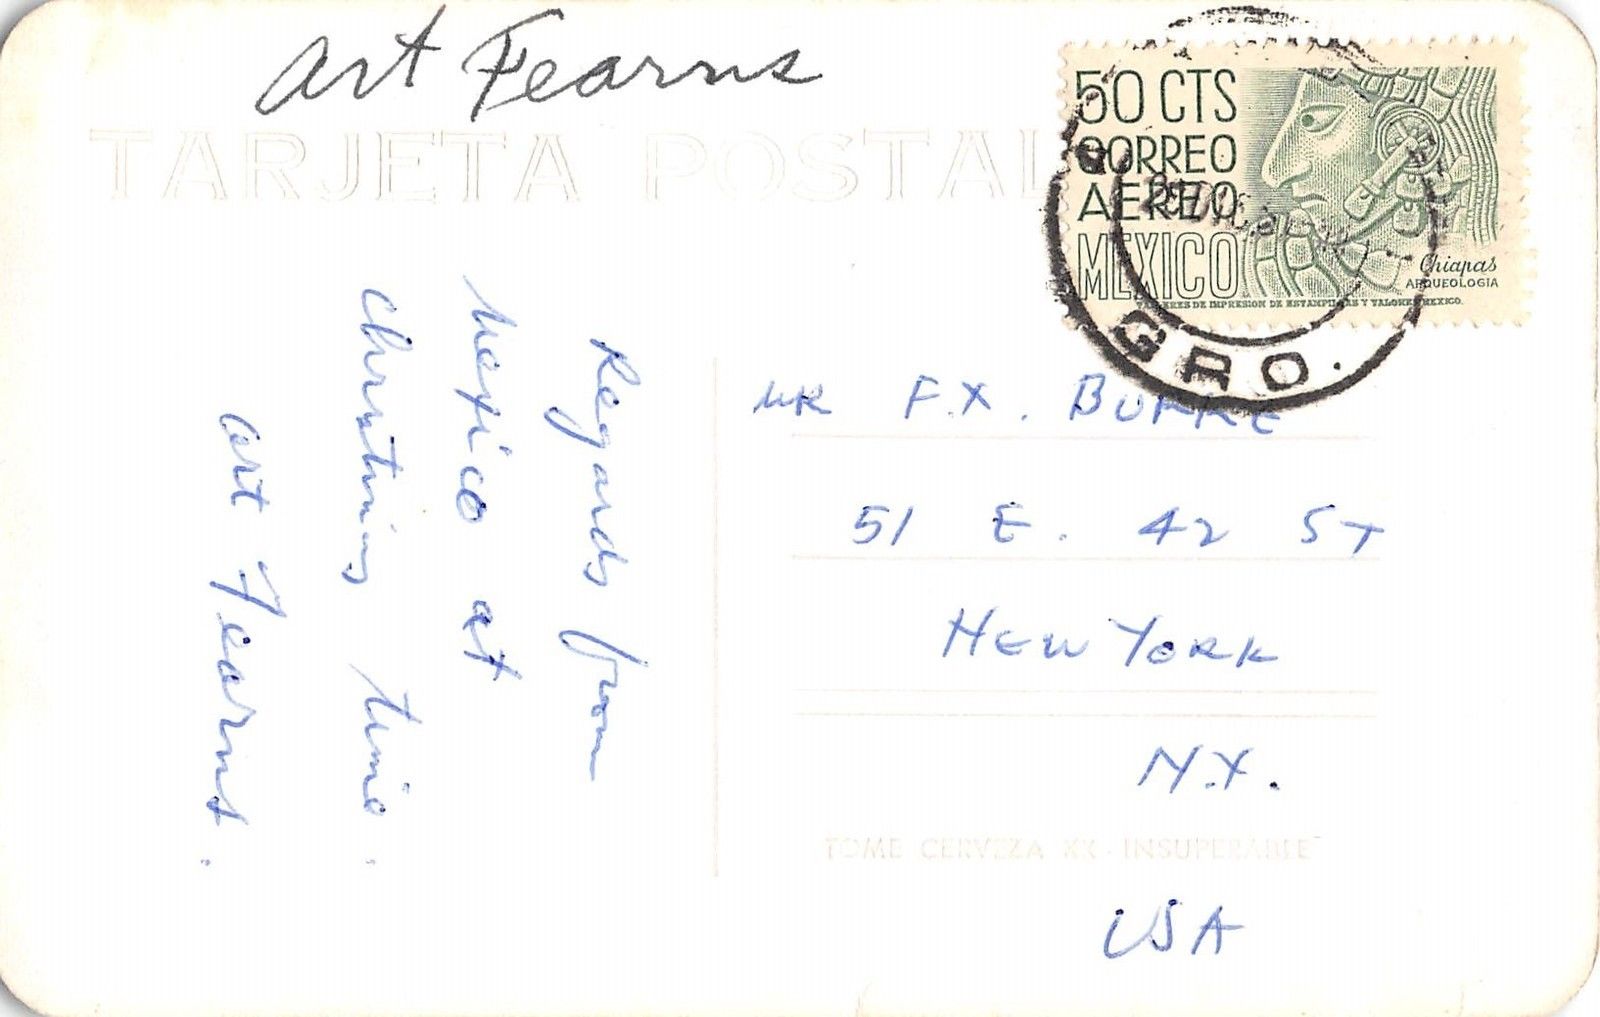 Art Fearns
TARJETA POSTAL
50 CTS
CORREO
AEREO
MEXICO
Chiapas
ARQUEOLOGIA
TALLERES DE IMPRESION DE ESTAMPILLAS Y VALORES MEXICO.
GRO.
Regards from
Mexico at
Christmas time.
Art Fearns.
MR F.X. BURKE
51 E. 42 ST
NEW YORK
N.Y.
TOME CERVEZA XX - INSUPERABLE
USA